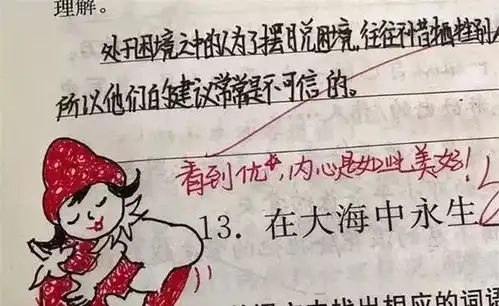 理解。
处于困境之中的人为了摆脱困境,往往不惜牺牲别人
所以他们的建议常常是不可信的。
看到优*,内心是如此美好!
13. 在大海中永生
出相应的词语